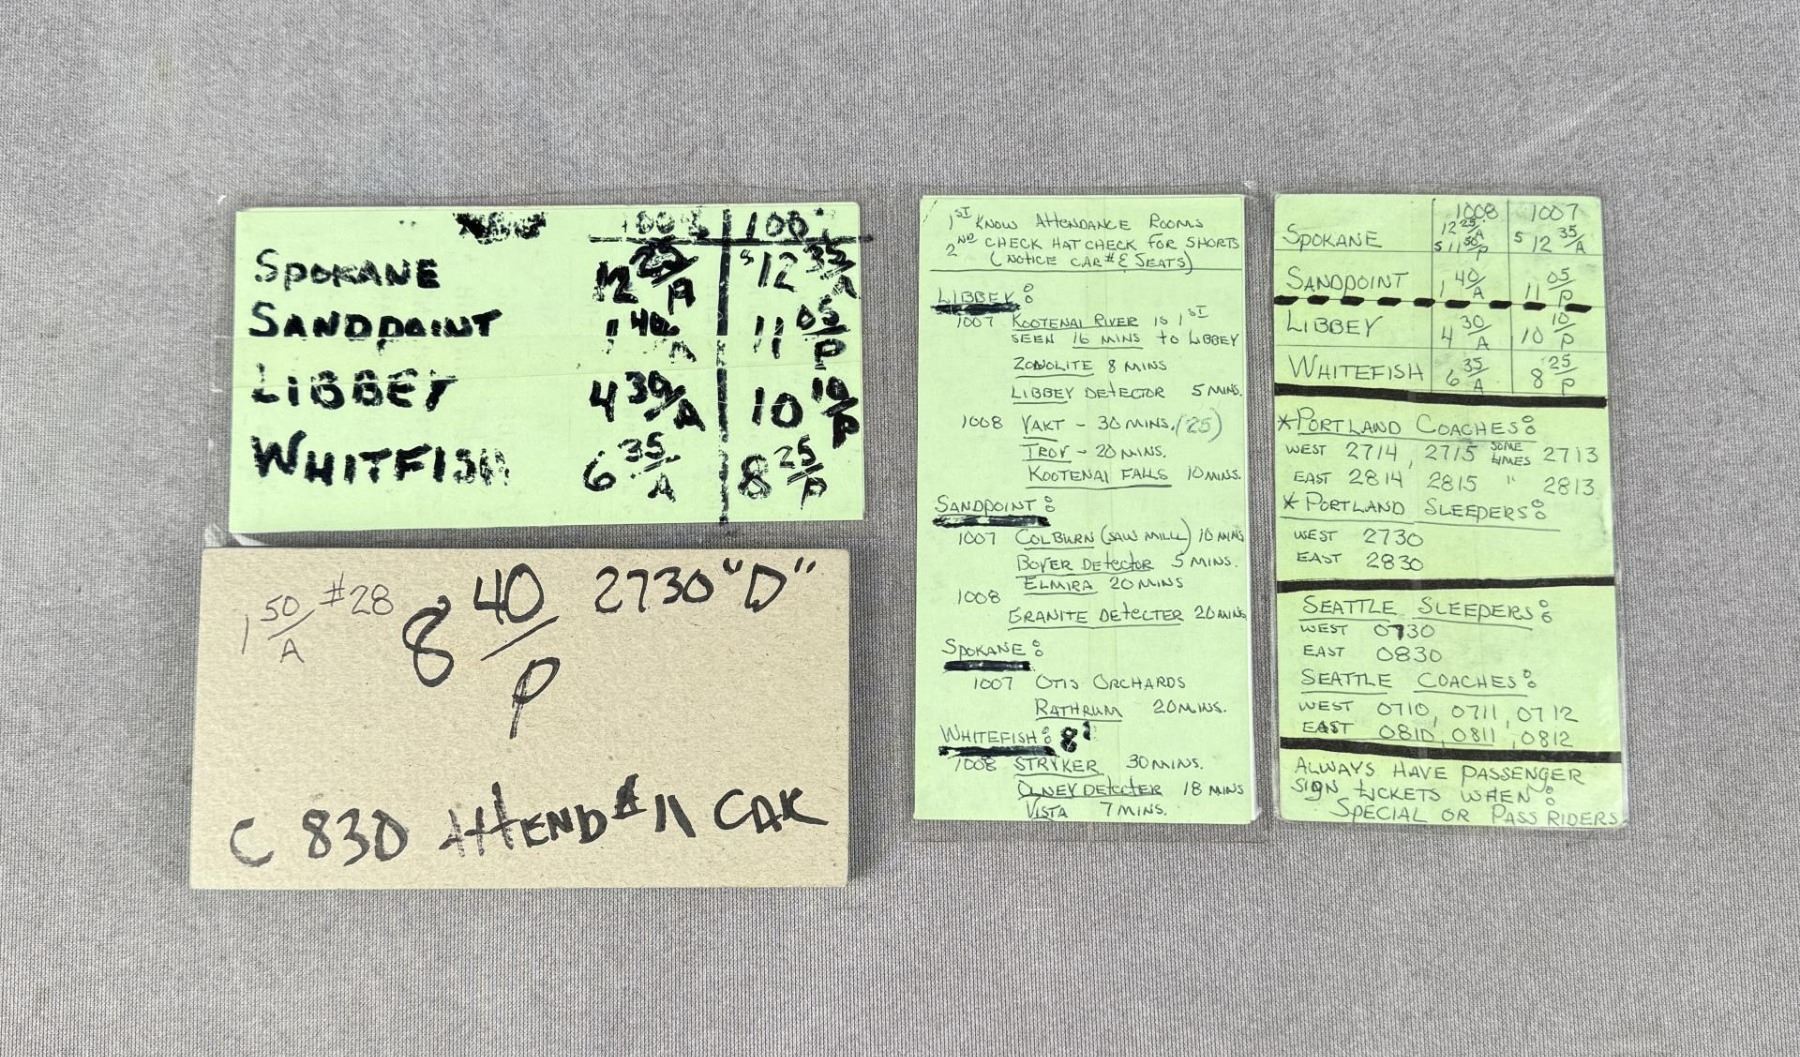 1008 100
SPOKANE 12 25/A S 12 35/A
SANDPOINT 1 40/A 11 05/P
LIBBEY 4 30/A 10 10/P
WHITEFISH 6 35/A 8 25/P
1 50/A #28 8 40/P 2730 "D"
C 830 ATTEND #11 CAR
1ST KNOW ATTENDANCE ROOMS
2ND CHECK HAT CHECK FOR SHORTS
(NOTICE CAR # & SEATS)
LIBBEY:
1007 KOOTENAI RIVER IS 1ST
SEEN 16 MINS TO LIBBEY
ZONOLITE 8 MINS
LIBBEY DETECTOR 5 MINS.
1008 YAKT - 30 MINS. (25)
TROY - 20 MINS.
KOOTENAI FALLS 10 MINS.
SANDPOINT:
1007 COLBURN (SAW MILL) 10 MINS
BOYER DETECTOR 5 MINS.
ELMIRA 20 MINS
1008
GRANITE DETECTER 20 MINS
SPOKANE:
1007 OTIS ORCHARDS
RATHRUM 20 MINS.
WHITEFISH: 8
1008 STRYKER 30 MINS.
OLNEY DETECTER 18 MINS
VISTA 7 MINS.
1008 1007
SPOKANE 12 25/A S 11 50/P S 12 35/A
SANDPOINT 1 40/A 11 05/P
LIBBEY 4 30/A 10 10/P
WHITEFISH 6 35/A 8 25/P
*PORTLAND COACHES:
WEST 2714, 2715 SOME TIMES 2713
EAST 2814 2815 " 2813
*PORTLAND SLEEPERS:
WEST 2730
EAST 2830
SEATTLE SLEEPERS:
WEST 0730
EAST 0830
SEATTLE COACHES:
WEST 0710, 0711, 0712
EAST 0810, 0811, 0812
ALWAYS HAVE PASSENGER
SIGN TICKETS WHEN:
SPECIAL OR PASS RIDERS